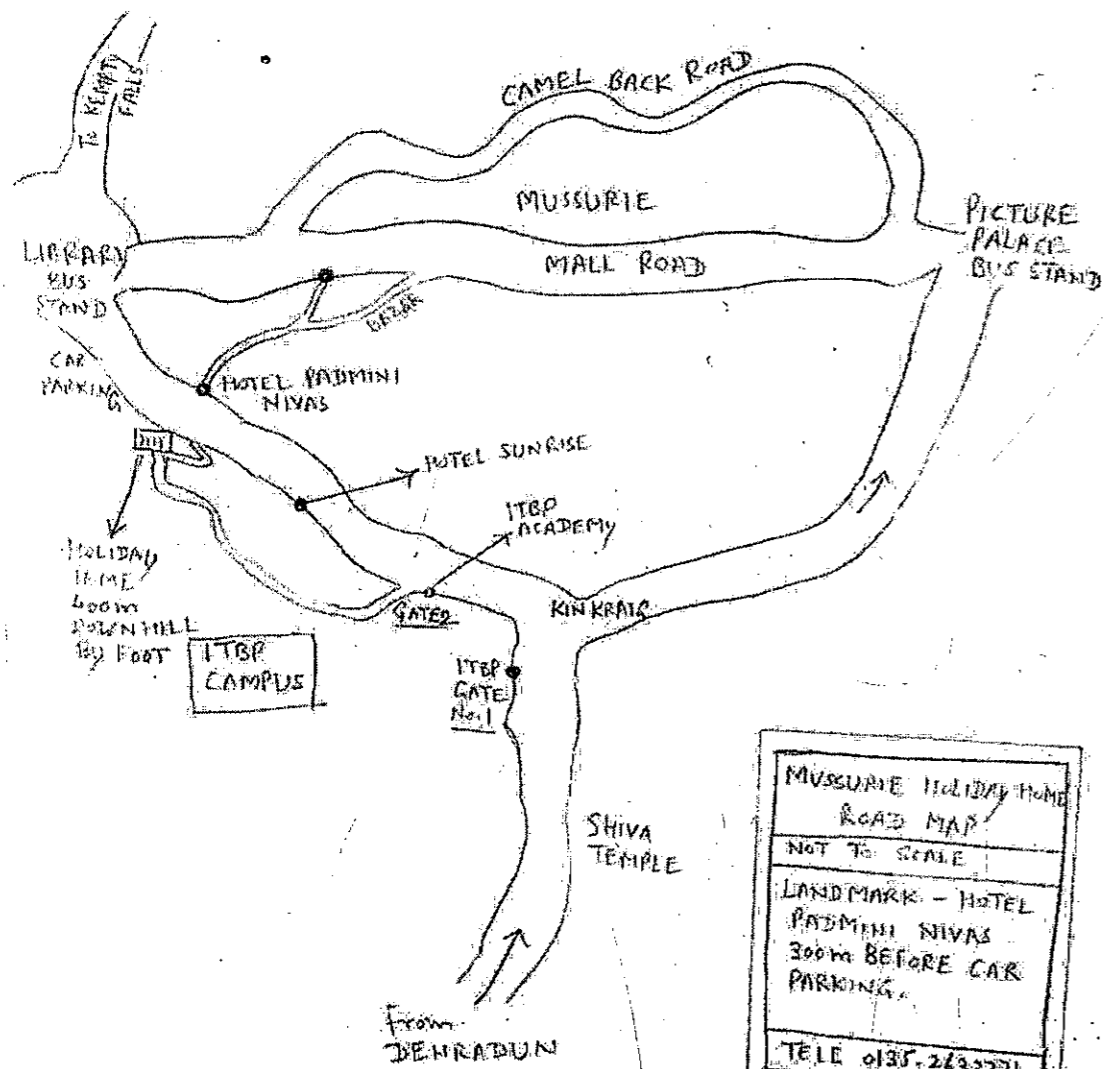 TO KEMPTY
FALLS
CAMEL BACK ROAD
MUSSURIE
MALL ROAD
LIBRARY
BUS
STAND
PICTURE
PALACE
BUS STAND
BAZAR
CAR
PARKING
HOTEL PADMINI
NIVAS
HOTEL SUNRISE
ITBP
ACADEMY
HOLIDAY
HOME
400m
DOWNHILL
BY FOOT
ITBP
CAMPUS
GATE2
KINKRAIG
ITBP
GATE
No.1
SHIVA
TEMPLE
From
DEHRADUN
MUSSURIE HOLIDAY HOME
ROAD MAP
NOT TO SCALE
LANDMARK - HOTEL
PADMINI NIVAS
300m BEFORE CAR
PARKING.
TELE 0135-